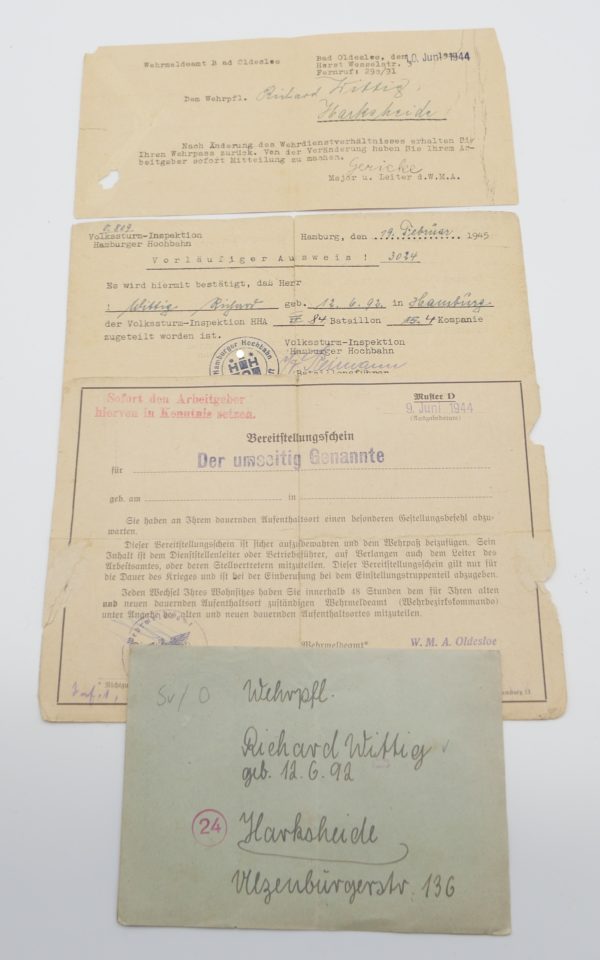 Wehrmeldeamt B ad Oldesloe
Bad Oldesloe, den 10. Juni 1944
Horst Wesselstr.
Fernruf: 290/91
Dem Wehrpfl. Richard Wittig,
Harksheide
Nach Änderung des Wehrdienstverhältnisses erhalten Sie
Ihren Wehrpass zurück. Von der Veränderung haben Sie Ihrem Ar-
beitgeber sofort Mitteilung zu machen.
Gericke
Major u. Leiter d.W.M.A.
Volkssturm-Inspektion
Hamburger Hochbahn
Hamburg, den 19. Februar 1945
Vorläufiger Ausweis! 3024
Es wird hiermit bestätigt, daß Herr
: Wittig Richard geb. 12.6.92. in Hamburg
der Volkssturm-Inspektion HHA 84 Bataillon 4 Kompanie
zugeteilt worden ist.
Volkssturm-Inspektion
Hamburger Hochbahn
Bataillonsführer
Hamburger Hochbahn
Sofort den Arbeitgeber
hiervon in Kenntnis setzen.
Muster D
9. Juni 1944
(Ausgabedatum)
Bereitstellungsschein
für Der umseitig Genannte
geb. am in
Sie haben an Ihrem dauernden Aufenthaltsort einen besonderen Gestellungsbefehl abzu-
warten.
Dieser Bereitstellungsschein ist sicher aufzubewahren und dem Wehrpaß beizufügen. Sein
Inhalt ist dem Dienststellenleiter oder Betriebsführer, auf Verlangen auch dem Leiter des
Arbeitsamtes, oder deren Stellvertretern mitzuteilen. Dieser Bereitstellungsschein gilt nur für
die Dauer des Krieges und ist bei der Einberufung bei dem Einstellungstruppenteil abzugeben.
Jeden Wechsel Ihres Wohnsitzes haben Sie innerhalb 48 Stunden dem für Ihren alten
und neuen dauernden Aufenthaltsort zuständigen Wehrmeldeamt (Wehrbezirkskommando)
unter Angabe des alten und neuen dauernden Aufenthaltsortes mitzuteilen.
Wehrmeldeamt*
W. M. A. Oldesloe
Wehrpfl.
Richard Wittig
geb. 12.6.92
24
Harksheide
Ulzenburgerstr. 136